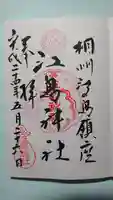 相州江島鎮座
江島神社
奉拝
平成二十四年五月二十六日